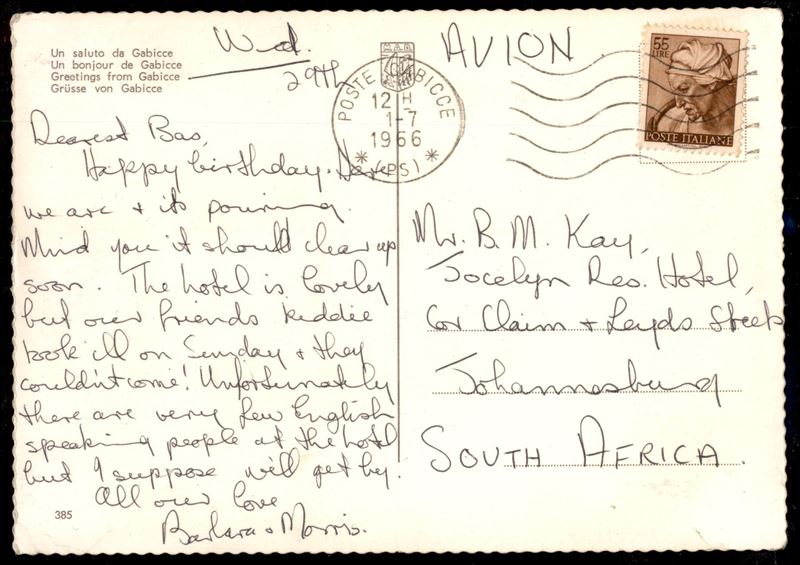 Un saluto da Gabicce
Un bonjour de Gabicce
Greetings from Gabicce
Grüsse von Gabicce
Wed.
29th
Dearest Bas,
Happy birthday. Here
we are + its pouring
Mind you it should clear up
soon. The hotel is lovely
but our friends kiddie
took ill on Sunday + they
couldn't come! Unfortunately
there are very few English
speaking people at the hotel
but I suppose we'll get by.
All our love
Barbara + Morris.
385
POSTE GABICCE
12 H
1-7
1966
(PS)
AVION
55
LIRE
POSTE ITALIANE
Mr. B. M. Kay,
Jocelyn Res. Hotel,
Cor Claim + Leyds Streets
Johannesburg
SOUTH AFRICA.